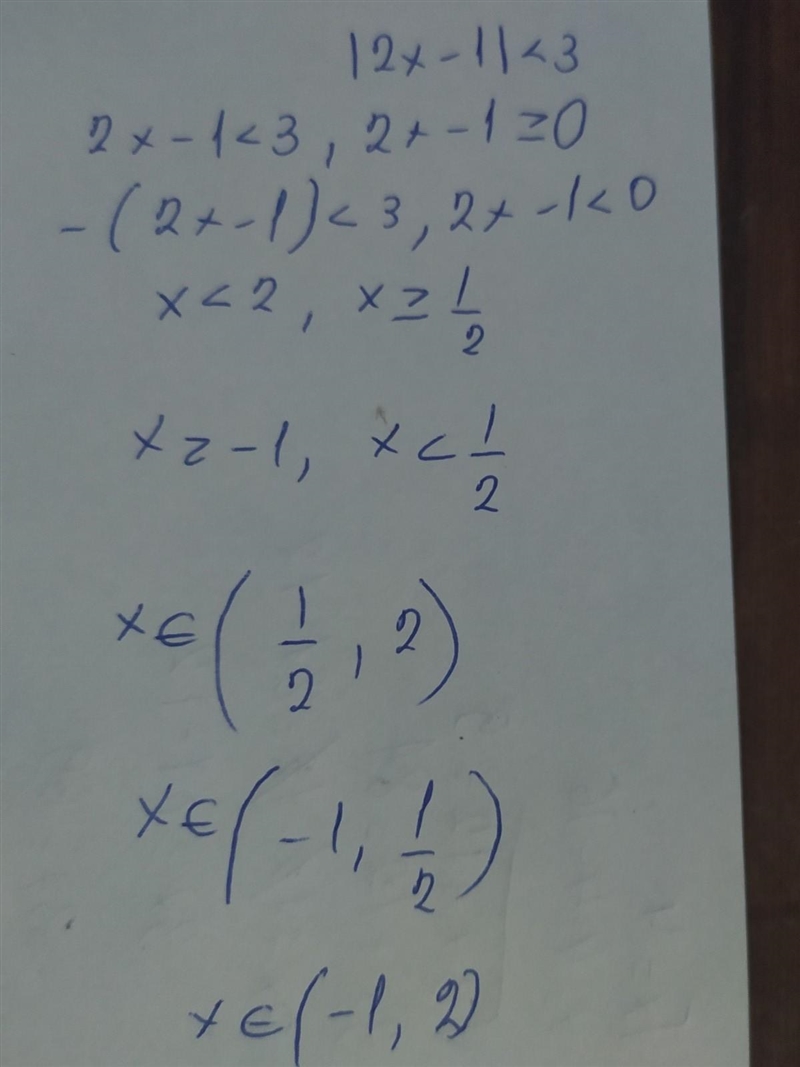 |2x-1|<3
2x-1<3, 2x-1≥0
-(2x-1)<3, 2x-1<0
x<2, x≥1/2
x≥-1, x<1/2
x∈(1/2, 2)
x∈(-1, 1/2)
x∈(-1, 2)